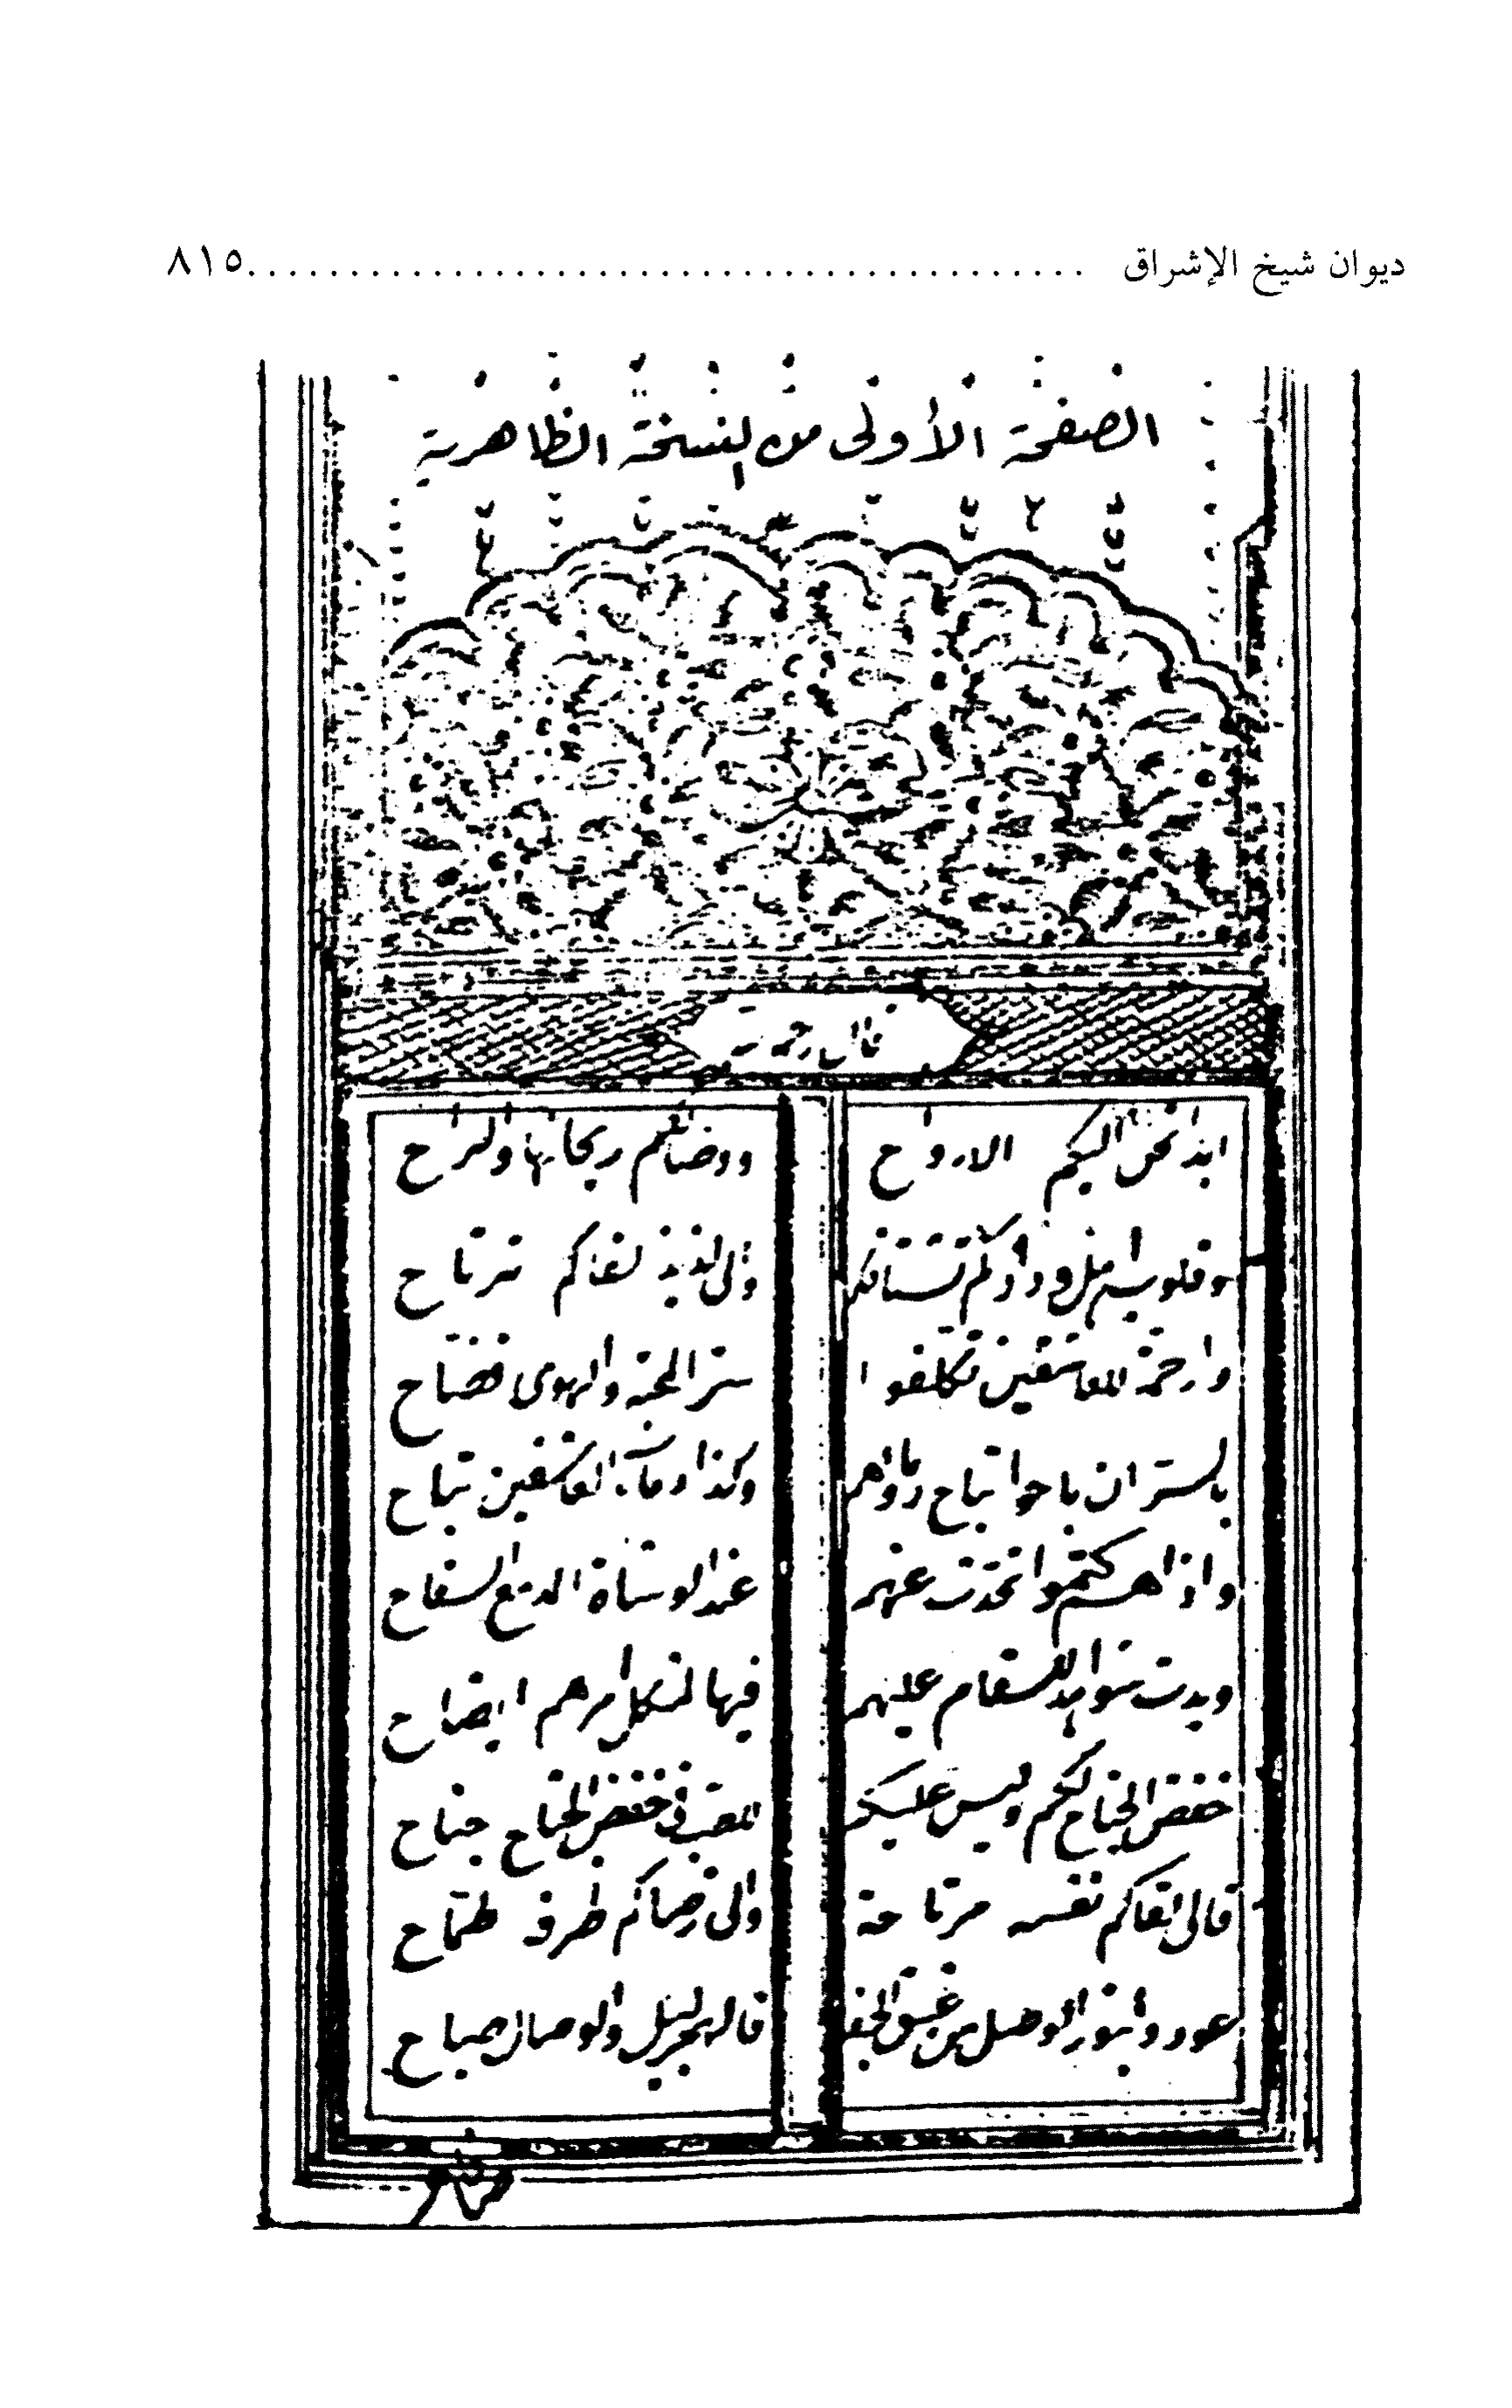 ديوان شيخ الإشراق ........................................ ٨١٥
الصفحة الأولى من النسخة الظاهرية
قال رحمه
ابدا تحن اليكم الارواح ووصالكم ريحانها والراح
وقلوب اهل ودادكم تشتاقكم والى لذيذ لقاكم ترتاح
وا رحمة للعاشقين تكلفوا ستر المحبة والهوى فضاح
بالستر ان باحوا تباح دماؤهم وكذا دماء العاشقين تباح
واذا هم كتموا تحدث عنهم عند الوشاة المدمع السفاح
وبدت شواهد للسقام عليهم فيها لمشكل امرهم ايضاح
خفض الجناح لكم وليس عليكم للصب في خفض الجناح جناح
فالى لقاكم نفسه مرتاحة والى رضاكم طرفه طماح
عودوا بنور الوصل من غسق الجفا فالهجر ليل والوصال صباح